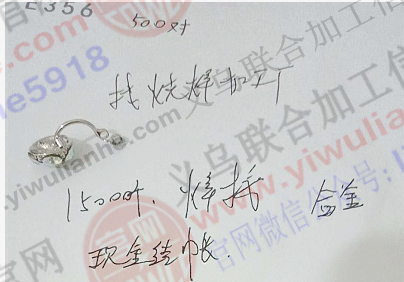 E356
500对
找烧焊加工厂
15000对、焊接 合金
现金结帐.
义乌联合加工信
www.yiwulianhe.com
官网
官网微信公众号:li
e5918